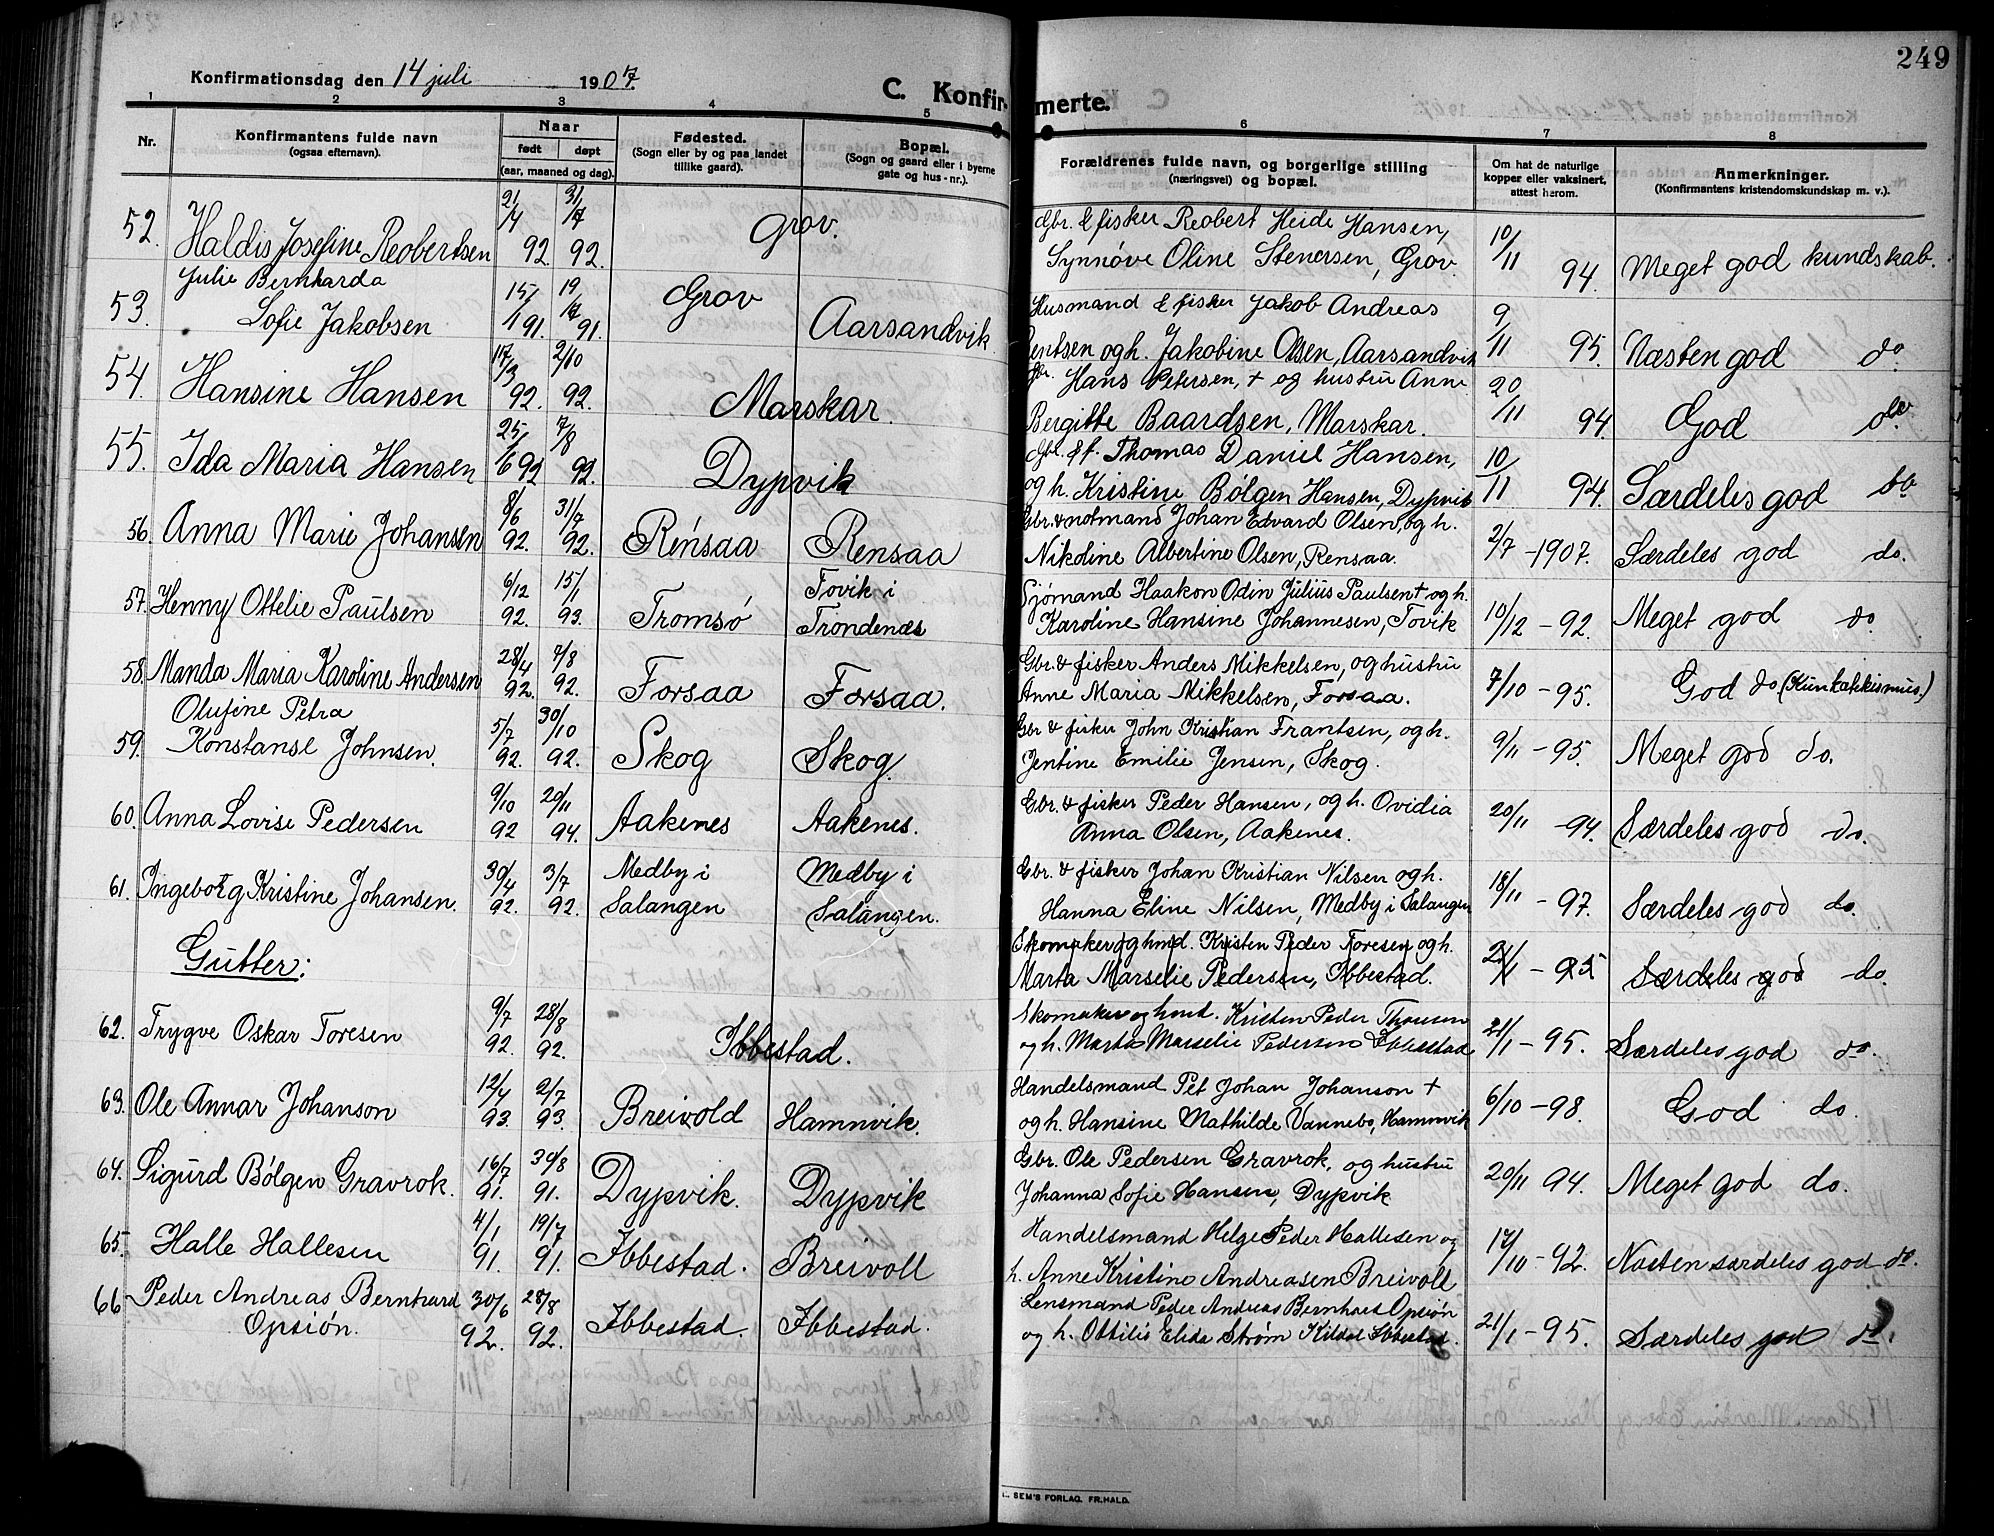 249
Konfirmationsdag den 14 juli 1907.
C. Konfirmerte.
1 2 3 4 5 6 7 8
Nr.
Konfirmantens fulde navn
(ogsaa efternavn).
Naar
født døpt
(aar, maaned og dag).
Fødested.
(Sogn eller by og paa landet
tillike gaard).
Bopæl.
(Sogn og gaard eller i byerne
gate og hus-nr.).
Forældrenes fulde navn, og borgerlige stilling
(næringsvei) og bopæl.
Om hat de naturlige
kopper eller vaksinert,
attest herom.
Anmerkninger.
(Konfirmantens kristendomskundskap m. v.).
52. Haldis Josefine Reobertsen 21/4 92. 31/7 92. Grov. Gbr. & fisker Reobert Heide Hansen,
Synnøve Oline Stenersen, Grov. 10/11 94. Meget god kundskab.
53. Julie Bernharda
Sofie Jakobsen 15/1 91. 19/ 91. Grov Aarsandvik Husmand & fisker Jakob Andreas
Bentsen og h. Jakobine Olsen, Aarsandvik 9/11 95. Næsten god do
54. Hansine Hansen 17/3 92. 2/10 92. Marskar. Gbr. Hans Petersen, + og hustru Anne
Bergitte Baardsen, Marskar. 20/11 94. God do.
55. Ida Maria Hansen 25/6 92 7/8 92. Dypvik Gbr. & f. Thomas Daniel Hansen,
og h. Kristine Bølgen Hansen, Dypvik 10/11 94. Særdeles god do
56. Anna Marie Johansen 8/6 92. 31/7 92. Rensaa Rensaa Gbr. & notmand Johan Edvard Olsen, og h.
Nikoline Albertine Olsen, Rensaa. 2/7 - 1907. Særdeles god do.
57. Henny Ottelie Paulsen 6/12 92. 15/1 93. Tromsø Tovik i
Trondenæs Sjømand Haakon Odin Julius Paulsen + og h.
Karoline Hansine Johannesen, Tovik 10/12 - 92. Meget god do.
58. Manda Maria Karoline Andersen 28/4 92. 7/8 92. Forsaa Forsaa. Gbr. & fisker Anders Mikkelsen, og hustru
Anne Maria Mikkelsen, Forsaa. 7/10 - 95. God do (Kun katekismus.)
59. Olufine Petra
Konstanse Johnsen. 5/7 92. 30/10 92. Skog Skog. Gbr & fisker John Kristian Frantsen, og h.
Jentine Emilie Jensen, Skog. 9/11 - 95. Meget god do.
60. Anna Lovise Pedersen 9/10 92 20/11 94. Aakenes Aakenes. Gbr. & fisker Peder Hansen, og h. Ovidia
Anna Olsen, Aakenes. 20/11 - 94. Særdeles god do.
61. Ingeborg Kristine Johansen. 30/4 92. 3/7 92. Medby i
Salangen Medby i
Salangen. Gbr. & fisker Johan Kristian Nilsen og h.
Hanna Eline Nilsen, Medby i Salangen 18/11 - 97. Særdeles god do.
Gutter:
Skomaker og hmd. Kristen Peder Toresen og h.
Marta Marselie Pedersen, Ibbestad. 21/1 - 95 Særdeles god do.
62. Trygve Oskar Toresen 9/7 92. 28/8 92. Ibbestad. Skomaker og hmd. Kristen Peder Thoresen
og h. Marta Marselie Pedersen Ibbestad 21/1 - 95. Særdeles god do.
63. Ole Annar Johanson 12/4 93. 2/7 93. Breivold Hamnvik. Handelsmand Pet Johan Johanson +
og h. Hansine Mathilde Vannebo, Hamnvik 6/10 - 98. God do.
64. Sigurd Bølgen Gravrok. 16/7 91. 30/8 91. Dypvik. Dypvik Gbr. Ole Pedersen Gravrok, og hustru
Johanna Sofie Hansen, Dypvik 20/11 94. Meget god do.
65. Halle Hallesen 4/1 91. 19/7 91. Ibbestad. Breivoll Handelsmand Helge Peder Hallesen og
h. Anne Kristine Andreasen Breivoll 17/10 - 92. Næsten særdeles god do.
66. Peder Andreas Bernhard
Opsiøn. 30/6 92. 28/8 92. Ibbestad. Ibbestad. Lensmand Peder Andreas Bernhard Opsiøn
og h. Ottilie Elida Strøm Kildal Ibbestad. 21/1 - 95. Særdeles god do.
SEM'S FORLAG. FR.HALD.